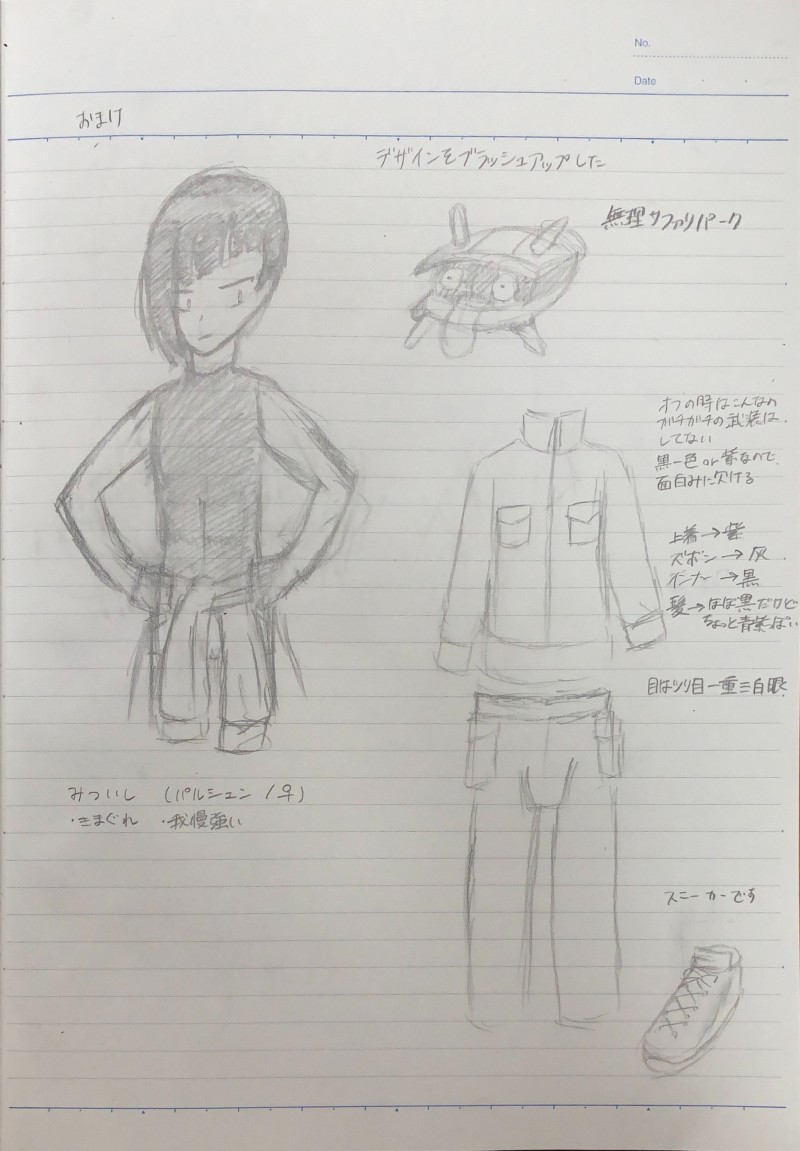 No.
Date
おまけ
デザインをブラッシュアップした
無理サファリパーク
オフの時はこんなの
ガチガチの武装は
してない
黒一色or紫なので
面白みに欠ける
上着→紫
ズボン→灰
インナー→黒
髪→ほぼ黒だけど
ちょっと青紫っぽい
目はツリ目一重三白眼
みついし (パルシェン/♀)
・きまぐれ ・我慢強い
スニーカーです